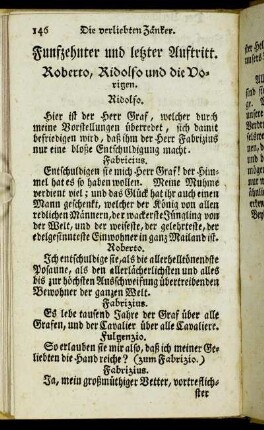 146 Die verliebten Zänker.
Funfzehnter und letzter Auftritt.
Roberto, Ridolfo und die Vo-
rigen.
Ridolfo.
Hier ist der Herr Graf, welcher durch
meine Vorstellungen überredet, sich damit
befriedigen wird, daß ihm der Herr Fabrizius
nur eine bloße Entschuldigung macht.
Fabricius.
Entschuldigen sie mich Herr Graf! der Him-
mel hat es so haben wollen. Meine Muhme
verdient viel; und das Glück hat ihr auch einen
Mann geschenkt, welcher der König von allen
redlichen Männern, der wackerste Jüngling von
der Welt, und der weiseste, der gelehrteste, der
edelgesinnteste Einwohner in ganz Mailand ist.
Roberto.
Ich entschuldige sie, als die allerhelltönendste
Posaune, als den allerlächerlichsten und alles
bis zur höchsten Ausschweifung übertreibenden
Bewohner der ganzen Welt.
Fabrizius.
Es lebe tausend Jahre der Graf über alle
Grafen, und der Cavalier über alle Cavaliere.
Fulgenzio.
So erlauben sie mir also, daß ich meiner Ge-
liebten die Hand reiche? (zum Fabrizio.)
Fabrizius.
Ja, mein großmüthiger Vetter, vortreflich-
ster